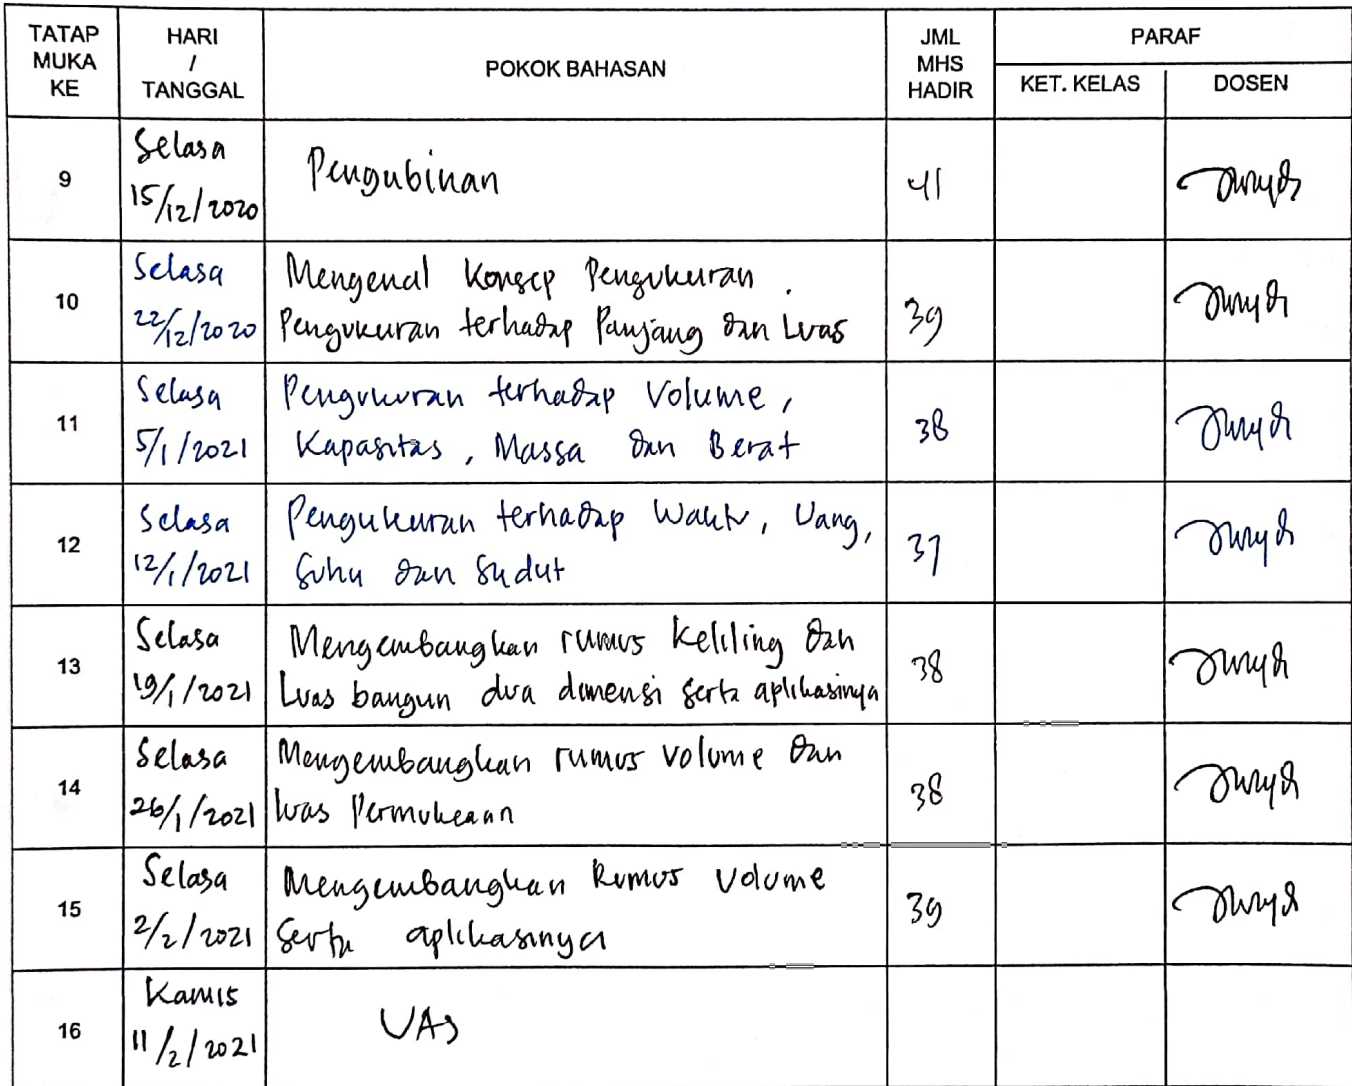 TATAP MUKA KE
HARI / TANGGAL
POKOK BAHASAN
JML MHS HADIR
PARAF
KET. KELAS
DOSEN
9
Selasa
15/12/2020
Pengubinan
41
10
Selasa
22/12/2020
Mengenal Konsep Pengukuran.
Pengukuran terhadap Panjang dan Luas
39
11
Selasa
5/1/2021
Pengukuran terhadap Volume,
Kapasitas, Massa dan Berat
38
12
Selasa
12/1/2021
Pengukuran terhadap Waktu, Uang,
Suhu dan Sudut
37
13
Selasa
19/1/2021
Mengembangkan rumus Keliling dan
Luas bangun dua dimensi serta aplikasinya
38
14
Selasa
26/1/2021
Mengembangkan rumus volume dan
luas Permukaan
38
15
Selasa
2/2/2021
Mengembangkan Rumus Volume
Serta aplikasinya
39
16
Kamis
11/2/2021
UAS